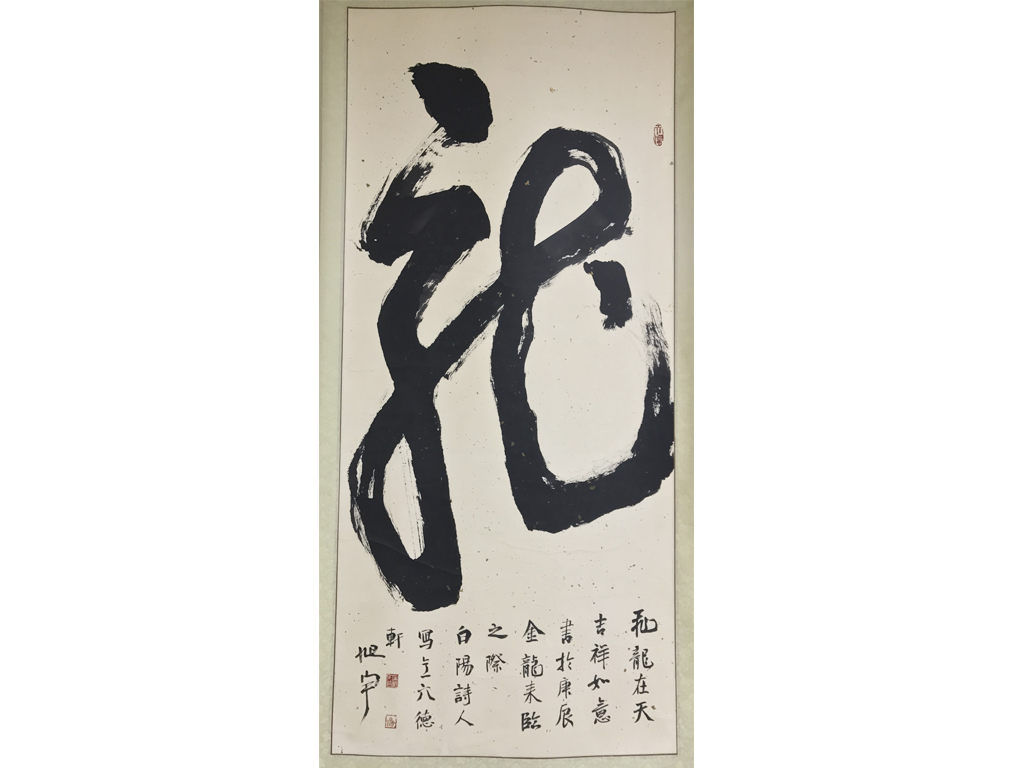 龍
飛龍在天
吉祥如意
書於庚辰
金龍来臨
之際
白陽詩人
寫六德
軒
旭宇